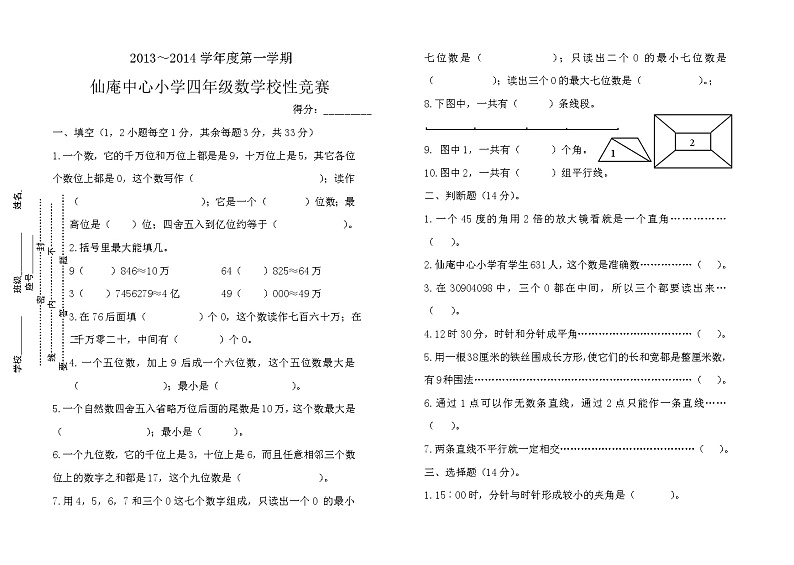 2013～2014学年度第一学期
仙庵中心小学四年级数学校性竞赛
得分：_________
一、填空（1，2小题每空1分，其余每题3分，共33分）
1.一个数，它的千万位和万位上都是是9，十万位上是5，其它各位
个数位上都是0，这个数写作（　　　）；读作
（　　　）；它是一个（　　　）位数；最
高位是（　　）位；四舍五入到亿位约等于（　　　）。
2.括号里最大能填几。
9（　　）846≈10万　　64（　　）825≈64万
3（　　）7456279≈4亿　　49（　　）000≈49万
3.在76后面填（　　　）个0，这个数读作七百六十万；在
二千万零二十，中间有（　　　）个0。
4.一个五位数，加上9后成一个六位数，这个五位数最大是
（　　　）；最小是（　　　）。
5.一个自然数四舍五入省略万位后面的尾数是10万，这个数最大是
（　　　）；最小是（　　）。
6.一个九位数，它的千位上是3，十位上是6，而且任意相邻三个数
位上的数字之和都是17，这个九位数是（　　　）。
7.用4，5，6，7和三个0这七个数字组成，只读出一个0 的最小
七位数是（　　　）；只读出二个0的最小七位数是
（　　　）；读出三个0的最大七位数是（　　　）。；
8.下图中，一共有（　　）条线段。
9. 图中1，一共有（　　）个角。
1
2
10.图中2，一共有（　　）组平行线。
二、判断题（14分）。
1.一个45度的角用2倍的放大镜看就是一个直角……………
（　）。
2.仙庵中心小学有学生631人，这个数是准确数……………（　）。
3.在30904098中，三个0都在中间，所以三个都要读出来…
（　）。
4.12时30分，时针和分针成平角……………………………（　）。
5.用一根38厘米的铁丝围成长方形，使它们的长和宽都是整厘米数，
有9种围法………………………………………………………（　）。
6.通过1点可以作无数条直线，通过2点只能作一条直线……
（　）。
7.两条直线不平行就一定相交…………………………………（　）。
三、选择题（14分）。
1.15∶00时，分针与时针形成较小的夹角是（　　）。
学校
班级
姓名
座号
密
封
线
内
不
要
答
题